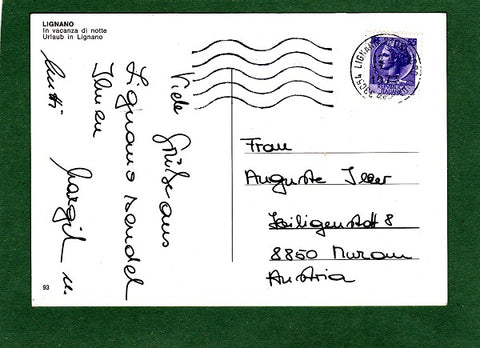 LIGNANO
In vacanza di notte
Urlaub in Lignano
Viele Grüße aus
Lignano sendet
Ihnen
Margit u.
93
LIGNANO
Frau
Auguste
Heiligenstatt 8
8850 Murau
Austria